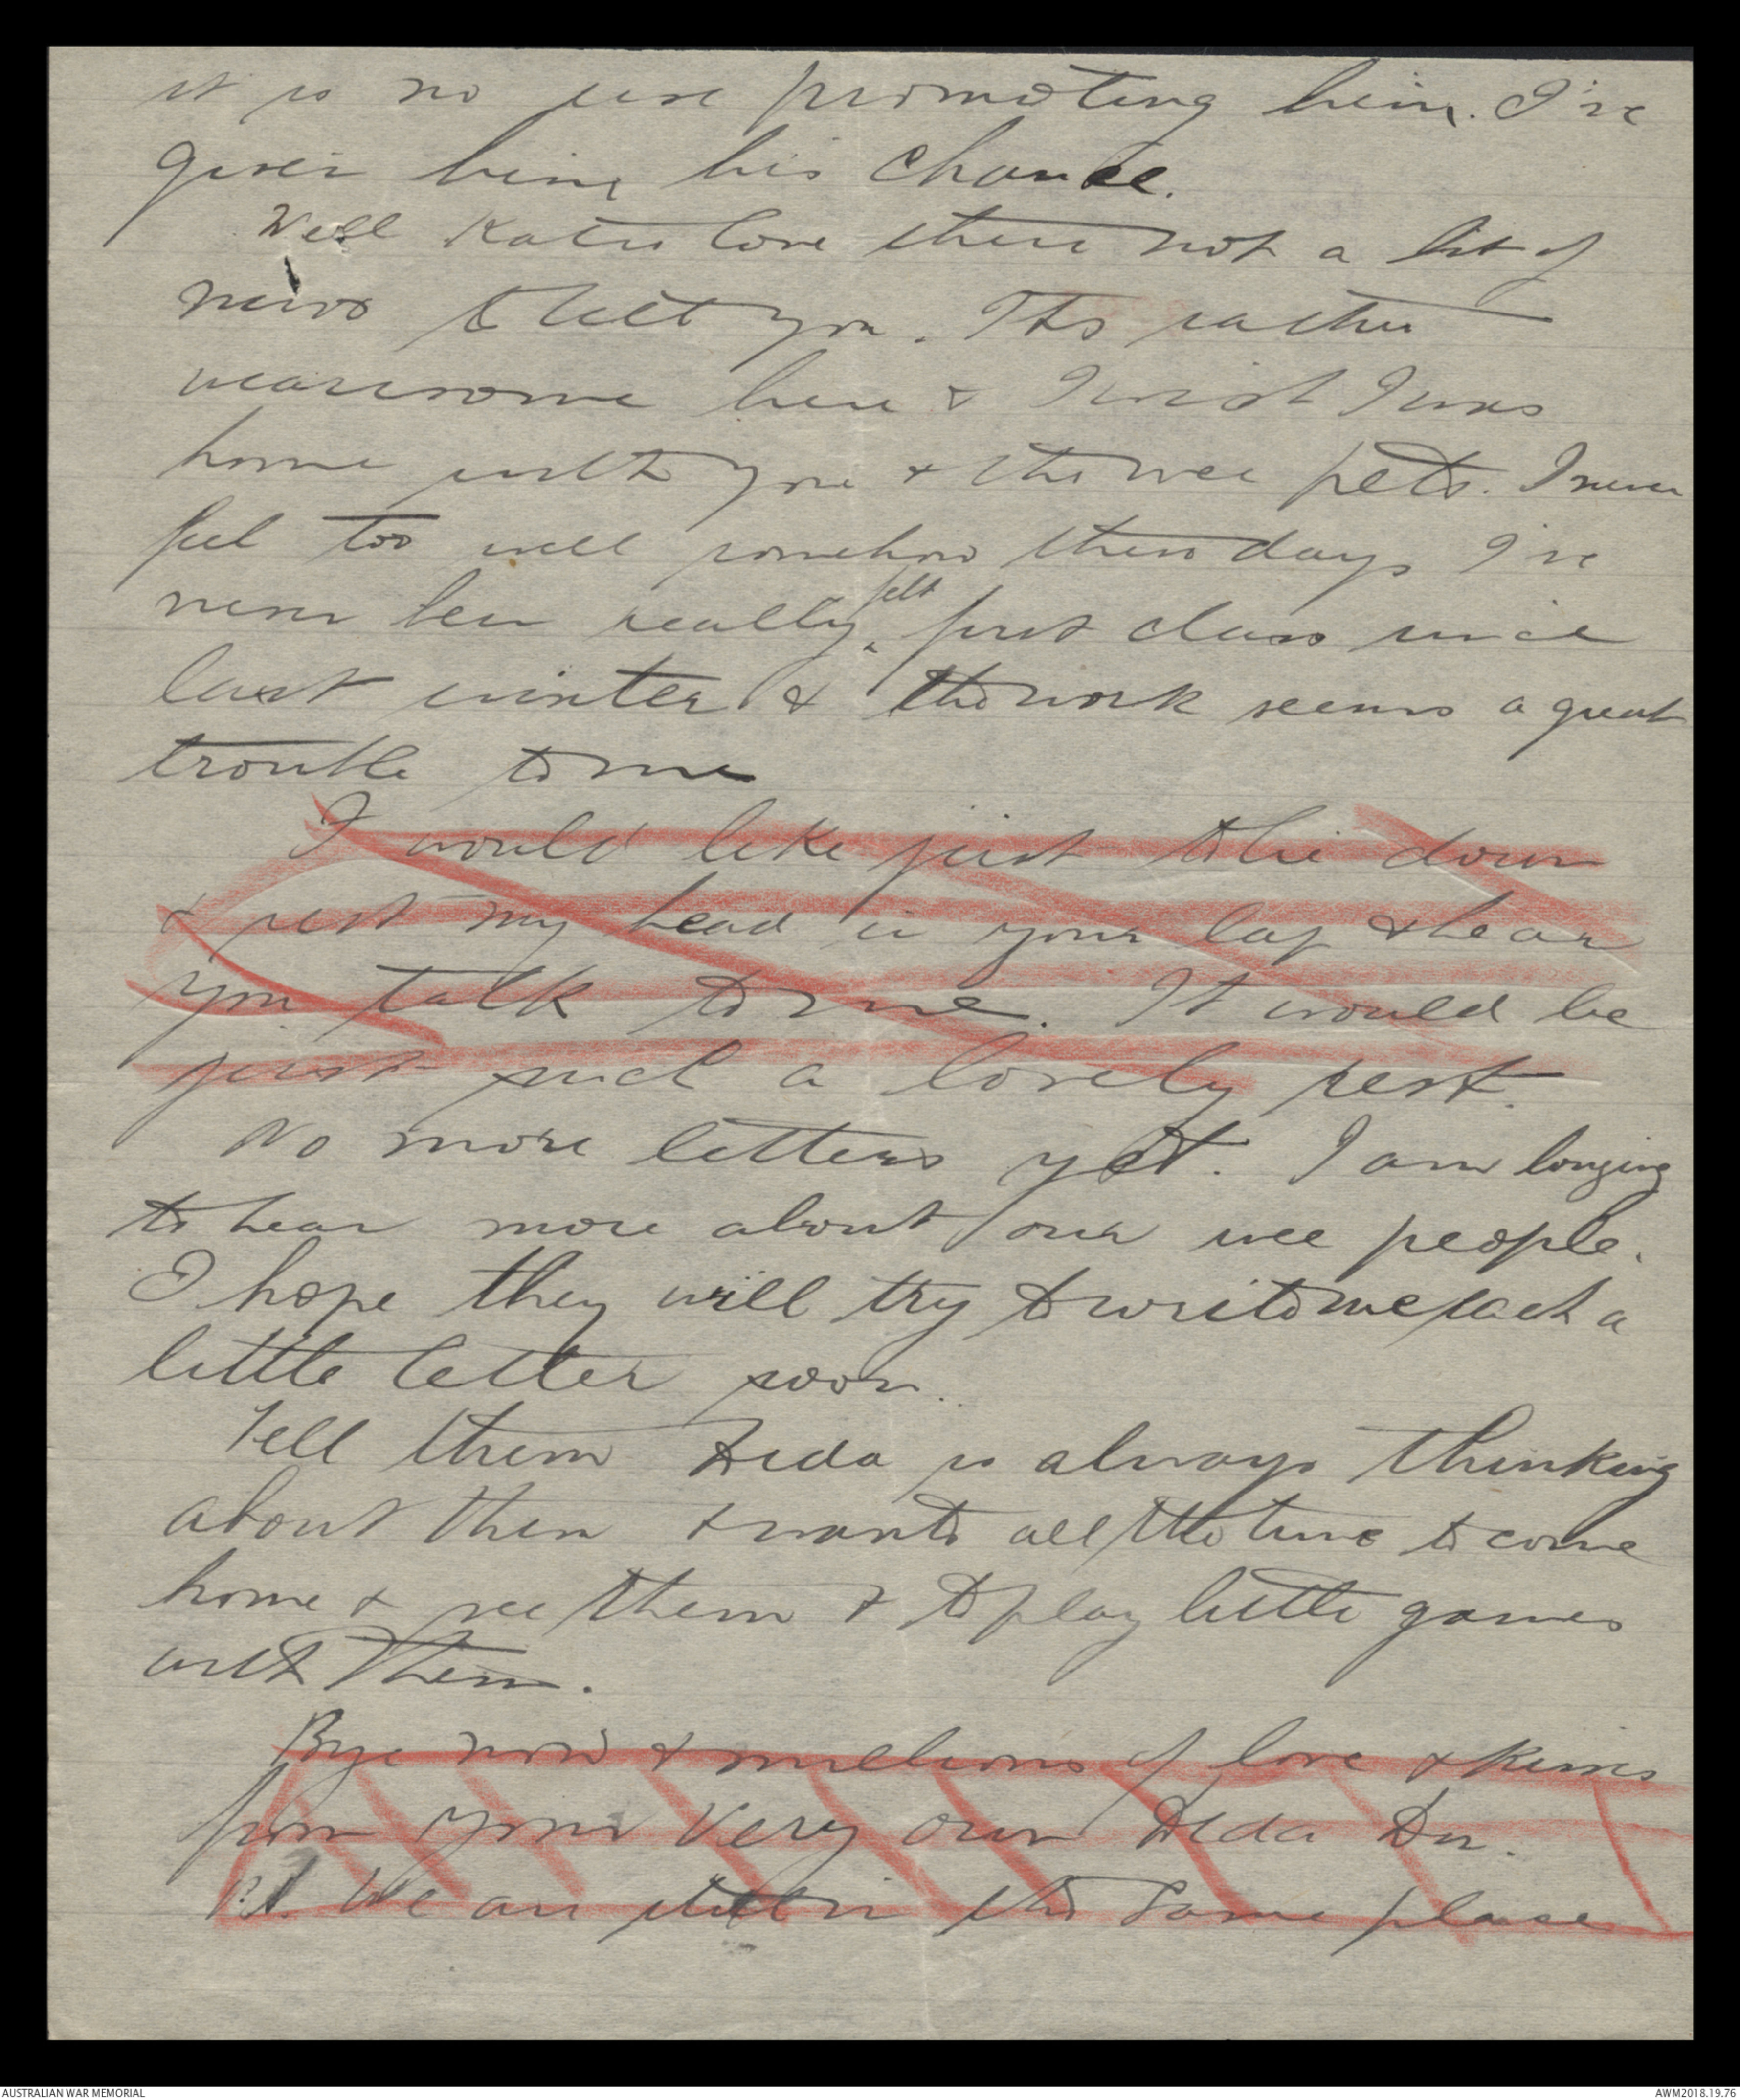 it is no use promoting him. I've
given him his chance.
Well Katie love there not a lot of
news to tell you. Its rather
wearisome here & I wish I was
home with you & the wee pets. I never
feel too well somehow these days I've
never been really felt first class since
last winter & the work seems a great
trouble to me
I would like just to lie down
& rest my head in your lap & hear
you talk to me. It would be
just such a lovely rest.
No more letters yet. I am longing
to hear more about our wee people.
I hope they will try to write me each a
little letter soon.
Tell them Dida is always thinking
about them & wants all the time to come
home & see them & to play little games
with them.
Bye now & millions of love & kisses
from your very own Dida
P.S. We are still in the same place
AUSTRALIAN WAR MEMORIAL
AWM2018.19.76